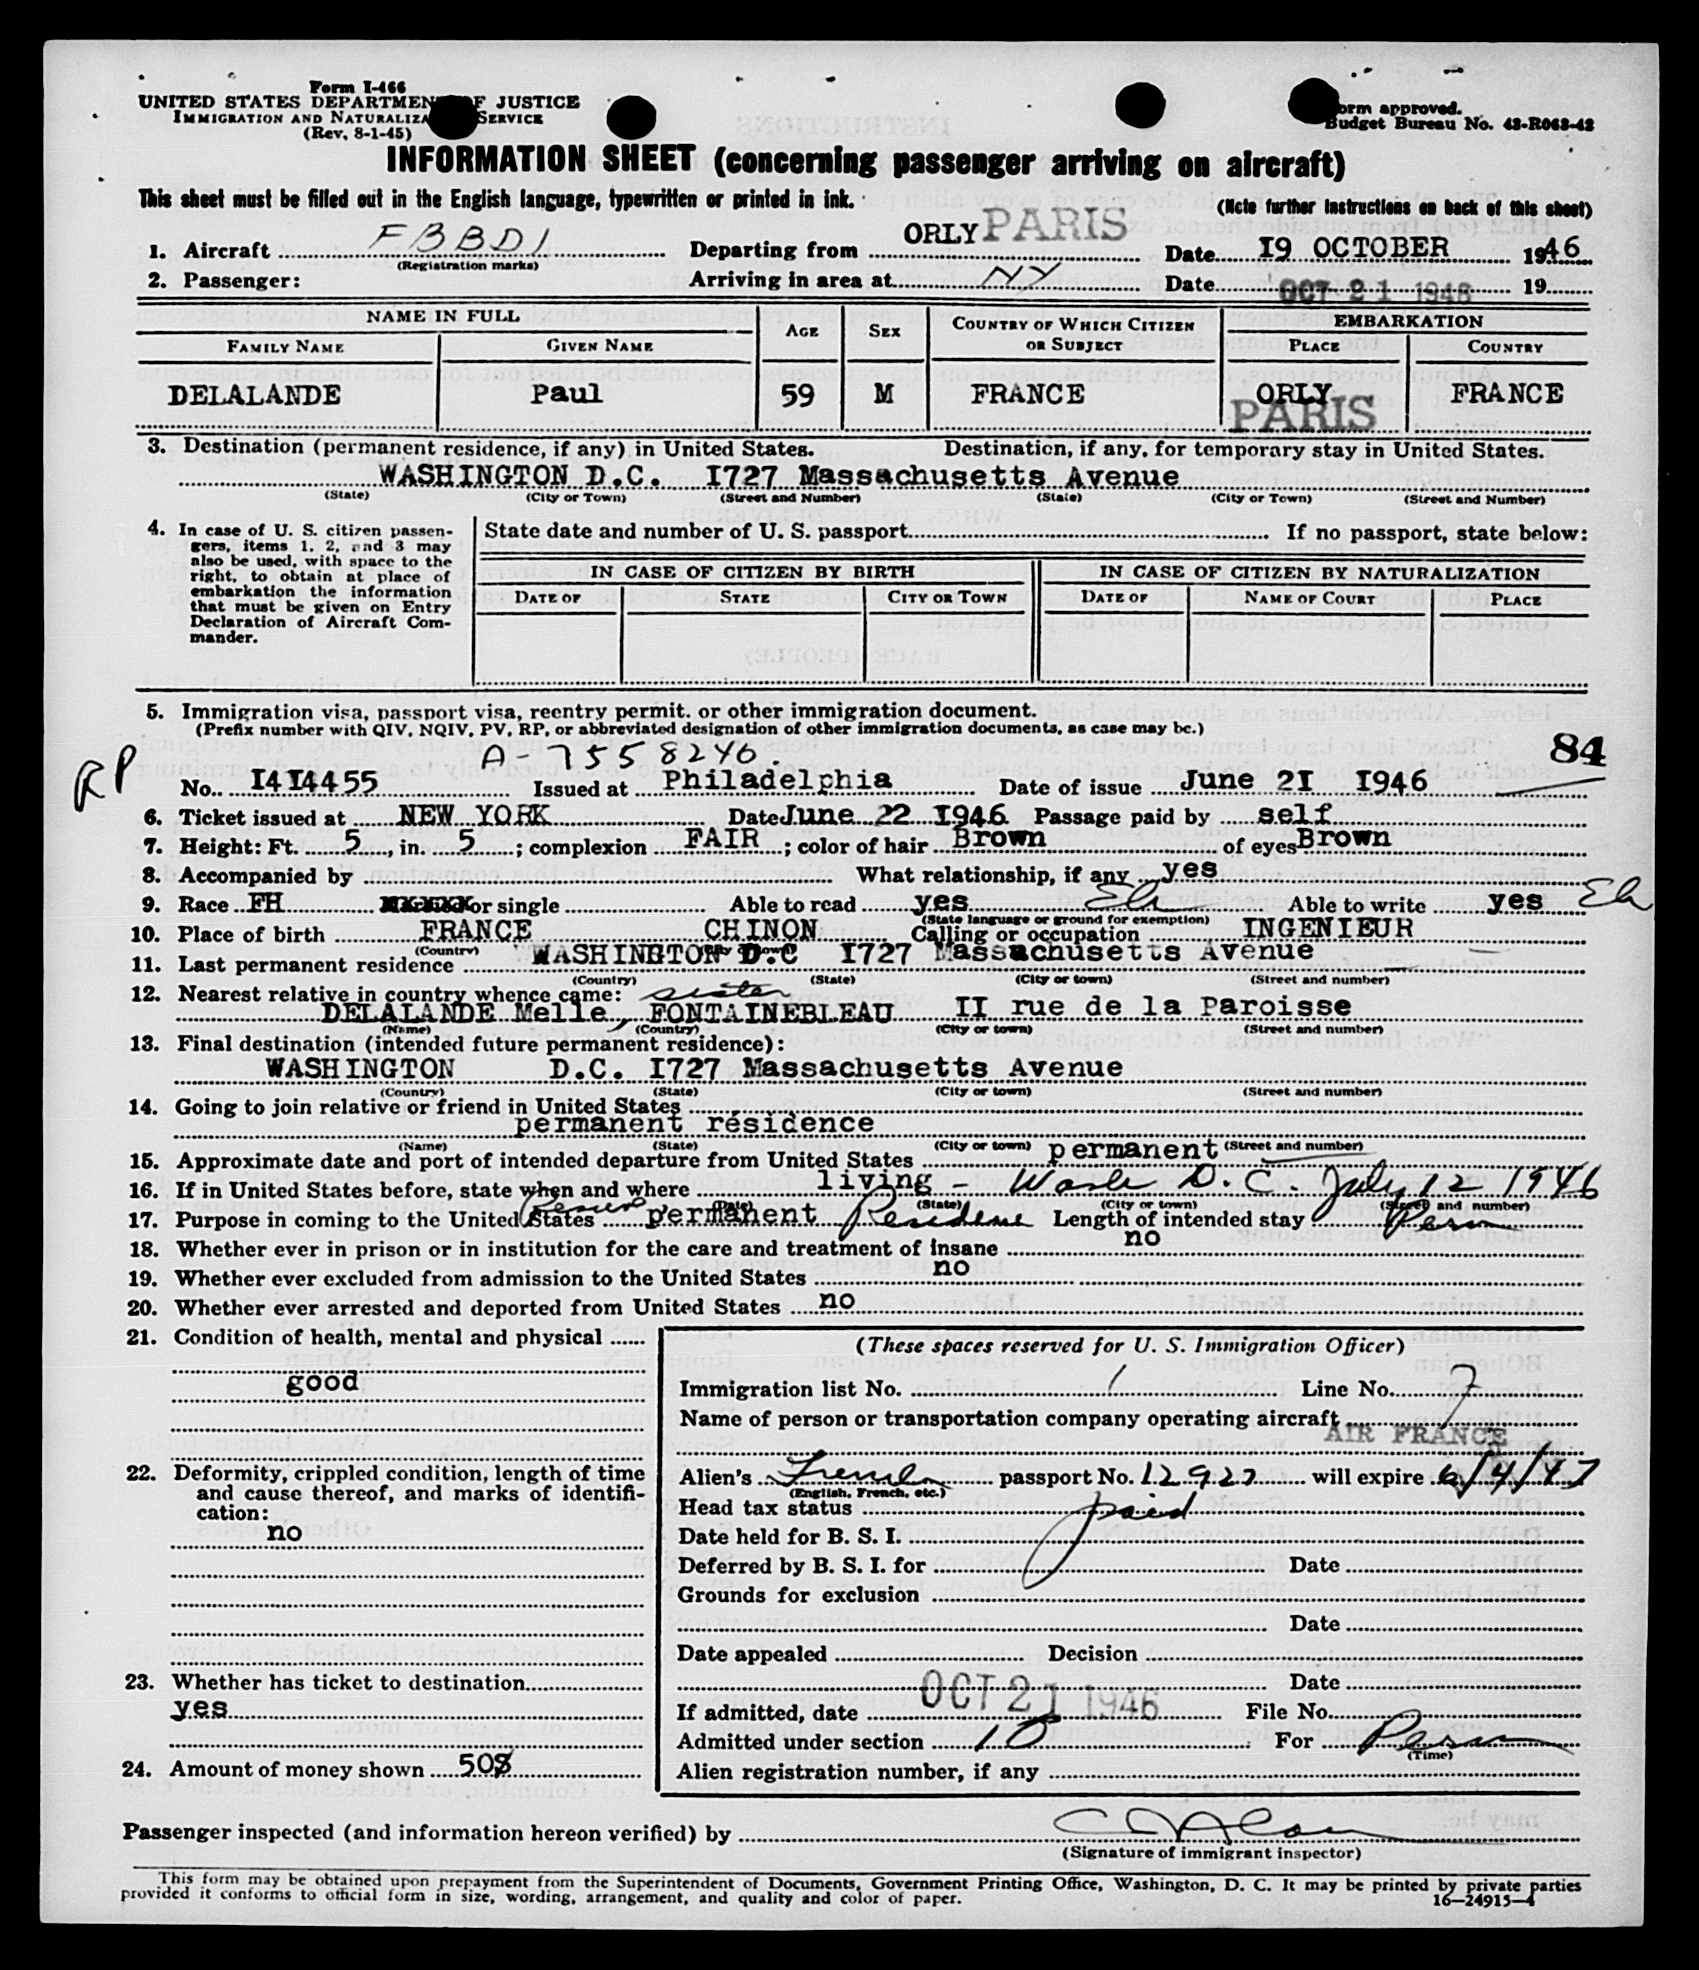 Form I-466
UNITED STATES DEPARTMEN F JUSTICE
IMMIGRATION AND NATURALIZA SERVICE
(Rev. 8-1-45)
orm approved.
Budget Bureau No. 43-R063-42
INFORMATION SHEET (concerning passenger arriving on aircraft)
This sheet must be filled out in the English language, typewritten or printed in ink.
(Note further instructions on back of this sheet)
1. Aircraft FBBDI Departing from ORLY PARIS Date 19 OCTOBER 1946
(Registration marks)
2. Passenger: Arriving in area at NY Date OCT 21 1946 19
NAME IN FULL AGE SEX COUNTRY OF WHICH CITIZEN OR SUBJECT EMBARKATION
FAMILY NAME GIVEN NAME PLACE COUNTRY
DELALANDE Paul 59 M FRANCE ORLY FRANCE
PARIS
3. Destination (permanent residence, if any) in United States. Destination, if any, for temporary stay in United States.
WASHINGTON D.C. I727 Massachusetts Avenue
(State) (City or Town) (Street and Number) (State) (City or Town) (Street and Number)
4. In case of U. S. citizen passengers, items 1, 2, and 3 may also be used, with space to the right, to obtain at place of embarkation the information that must be given on Entry Declaration of Aircraft Commander.
State date and number of U. S. passport If no passport, state below:
IN CASE OF CITIZEN BY BIRTH IN CASE OF CITIZEN BY NATURALIZATION
DATE OF STATE CITY OR TOWN DATE OF NAME OF COURT PLACE
5. Immigration visa, passport visa, reentry permit, or other immigration document.
(Prefix number with QIV, NQIV, PV, RP, or abbreviated designation of other immigration documents, as case may be.)
A-7558246. 84
RP No. I4I4455 Issued at Philadelphia Date of issue June 2I I946
6. Ticket issued at NEW YORK Date June 22 I946 Passage paid by self
7. Height: Ft. 5, in. 5; complexion FAIR; color of hair Brown of eyes Brown
8. Accompanied by What relationship, if any yes
9. Race FH or single Able to read yes Able to write yes
(State language or ground for exemption)
10. Place of birth FRANCE CHINON Calling or occupation INGENIEUR
(Country) (City or Town)
11. Last permanent residence WASHINGTON D.C I727 Massachusetts Avenue
(Country) (State) (City or town) (Street and number)
12. Nearest relative in country whence came: sister
DELALANDE Melle, FONTAINEBLEAU II rue de la Paroisse
(Name) (Country) (City or town) (Street and number)
13. Final destination (intended future permanent residence):
WASHINGTON D.C. I727 Massachusetts Avenue
(Country) (State) (City or town) (Street and number)
14. Going to join relative or friend in United States
permanent résidence
(Name) (State) (City or town) (Street and number)
15. Approximate date and port of intended departure from United States permanent
16. If in United States before, state when and where living - Wash D.C. July 12 1946
(Date) (State) (City or town) (Street and number)
17. Purpose in coming to the United States permanent Residence Length of intended stay Perm
18. Whether ever in prison or in institution for the care and treatment of insane no
19. Whether ever excluded from admission to the United States no
20. Whether ever arrested and deported from United States no
21. Condition of health, mental and physical
good
22. Deformity, crippled condition, length of time and cause thereof, and marks of identification:
no
23. Whether has ticket to destination
yes
24. Amount of money shown 50$
(These spaces reserved for U. S. Immigration Officer)
Immigration list No. 1 Line No. 7
Name of person or transportation company operating aircraft
AIR FRANCE
Alien's French passport No. 12927 will expire 6/4/47
(English, French, etc.)
Head tax status paid
Date held for B. S. I.
Deferred by B. S. I. for Date
Grounds for exclusion
Date
Date appealed Decision
Date
If admitted, date OCT 21 1946 File No.
Admitted under section 10 For Perm
(Time)
Alien registration number, if any
Passenger inspected (and information hereon verified) by
(Signature of immigrant inspector)
This form may be obtained upon prepayment from the Superintendent of Documents, Government Printing Office, Washington, D. C. It may be printed by private parties
provided it conforms to official form in size, wording, arrangement, and quality and color of paper.
16—24915-4